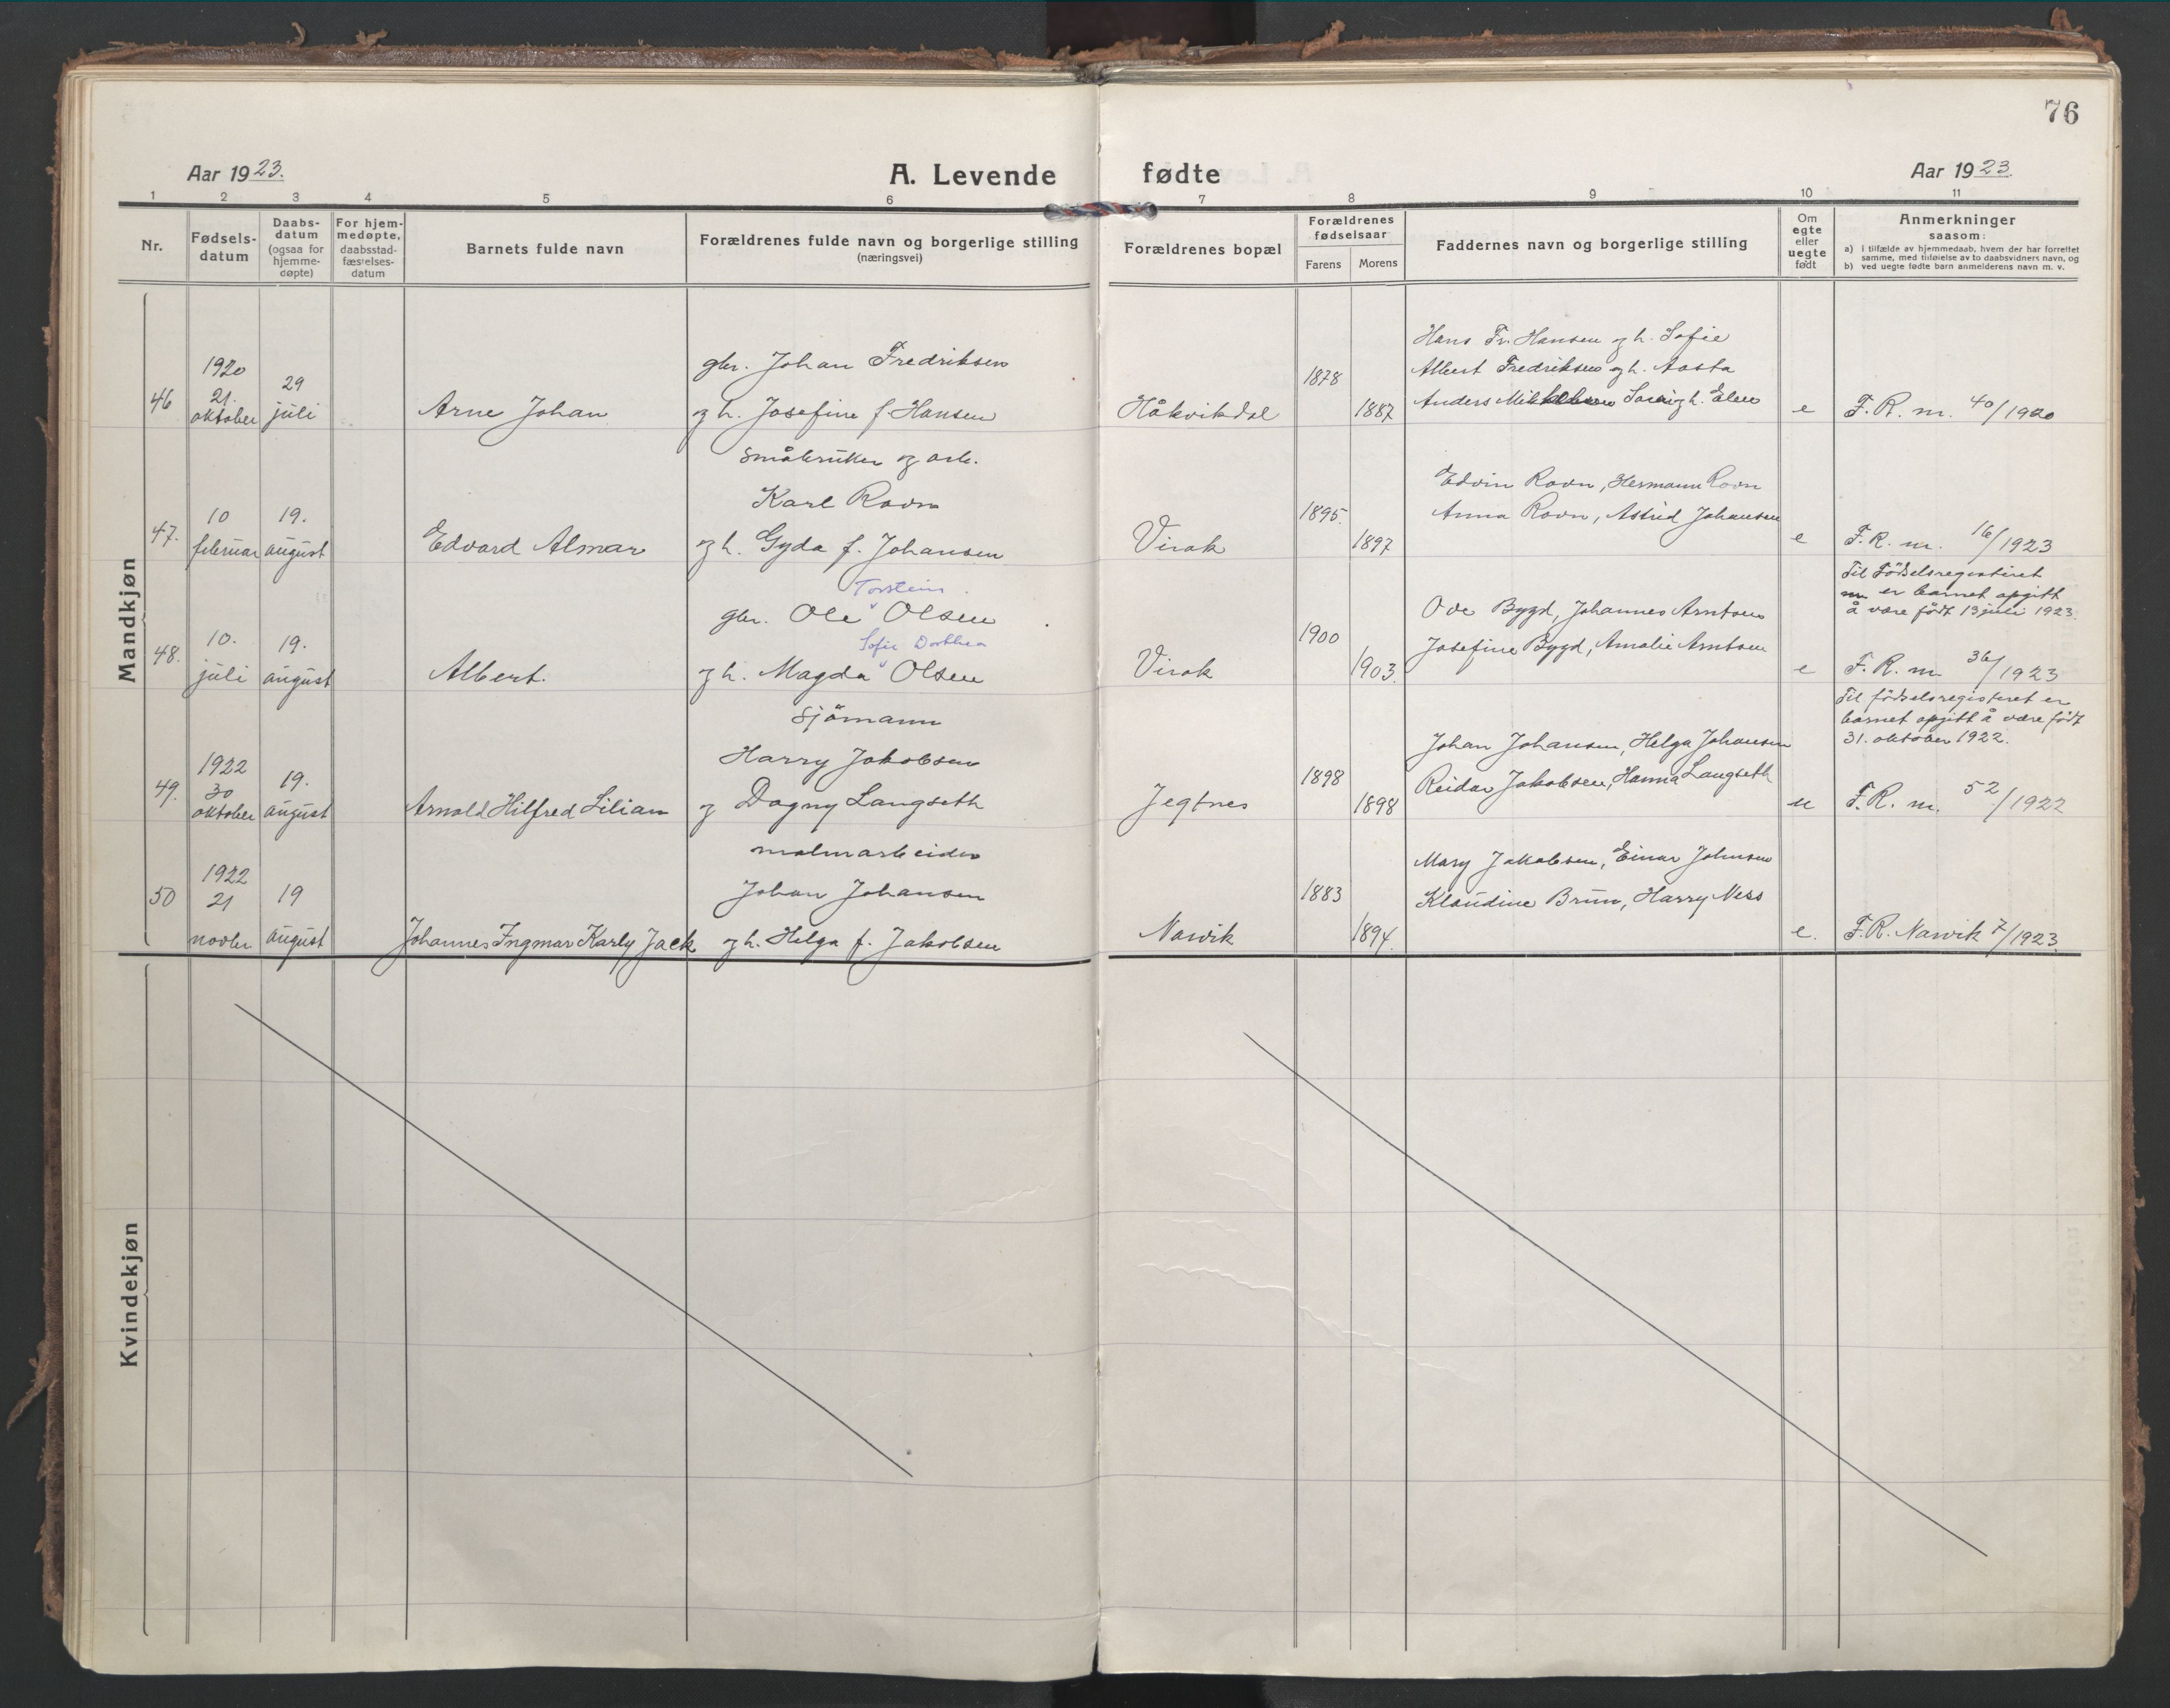 76
Aar 1923.
A. Levende
fødte
Aar 1923.
1 2 3 4 5 6 7 8 9 10 11
Nr.
Fødsels-
datum
Daabs-
datum
(ogsaa for
hjemme-
døpte)
For hjem-
medøpte,
daabsstad-
fæstelses-
datum
Barnets fulde navn
Forældrenes fulde navn og borgerlige stilling
(næringsvei)
Forældrenes bopæl
Forældrenes
fødselsaar
Farens Morens
Faddernes navn og borgerlige stilling
Om
egte
eller
uegte
født
Anmerkninger
saasom:
a) i tilfælde av hjemmedaab, hvem der har forrettet
samme, med tilføielse av to daabsvidners navn, og
b) ved uegte fødte barn anmelderens navn m. v.
Mandkjøn
46
1920
21.
oktober
29
juli
Arne Johan
gbr. Johan Fredriksen
og h. Josefine f. Hansen
Håkvikdal
1878
1887
Hans Fr. Hansen og h. Sofie
Albert Fredriksen og h. Aasta
Anders Mikkelsen og h. Elen
e
F. R. nr. 40/1920
47.
10
februar
19.
august
Edvard Almar
småbruker og arb.
Karl Ravn
og h. Gyda f. Johansen
Virak
1895.
1897
Edvin Ravn, Hermann Ravn
Anna Ravn, Astrid Johansen
e
F. R. nr. 16/1923
48.
10.
juli
19.
august
Albert.
Torstein
gbr. Ole Olsen
Sofie Dorthea
og h. Magda Olsen
Virak
1900
1903.
Ove Bygd, Johannes Arntsen
Josefine Bygd, Amalie Arntsen
e
Til Fødselsregisteret
er barnet opgitt
å være født 13 juli 1923.
F. R. nr. 36/1923
49.
1922
30
oktober
19.
august
Arnold Hilfred Lilian
Sjömann
Harry Jakobsen
og Dagny Langseth
Jegtnes
1898
1898
Johan Johansen, Helga Johansen
Reidar Jakobsen, Hanna Langseth
u
Til fødselsregisteret er
barnet opgitt å være født
31. oktober 1922.
F. R. nr. 52/1922
50
1922
21
novbr
19
august
Johannes Ingmar Karly Jack
malmarbeider
Johan Johansen
og h. Helga f. Jakobsen
Narvik
1883
1894.
Mary Jakobsen, Einar Johnsen
Klaudine Brun, Harry Ness
e.
F. R. Narvik 7/1923.
Kvindekjøn